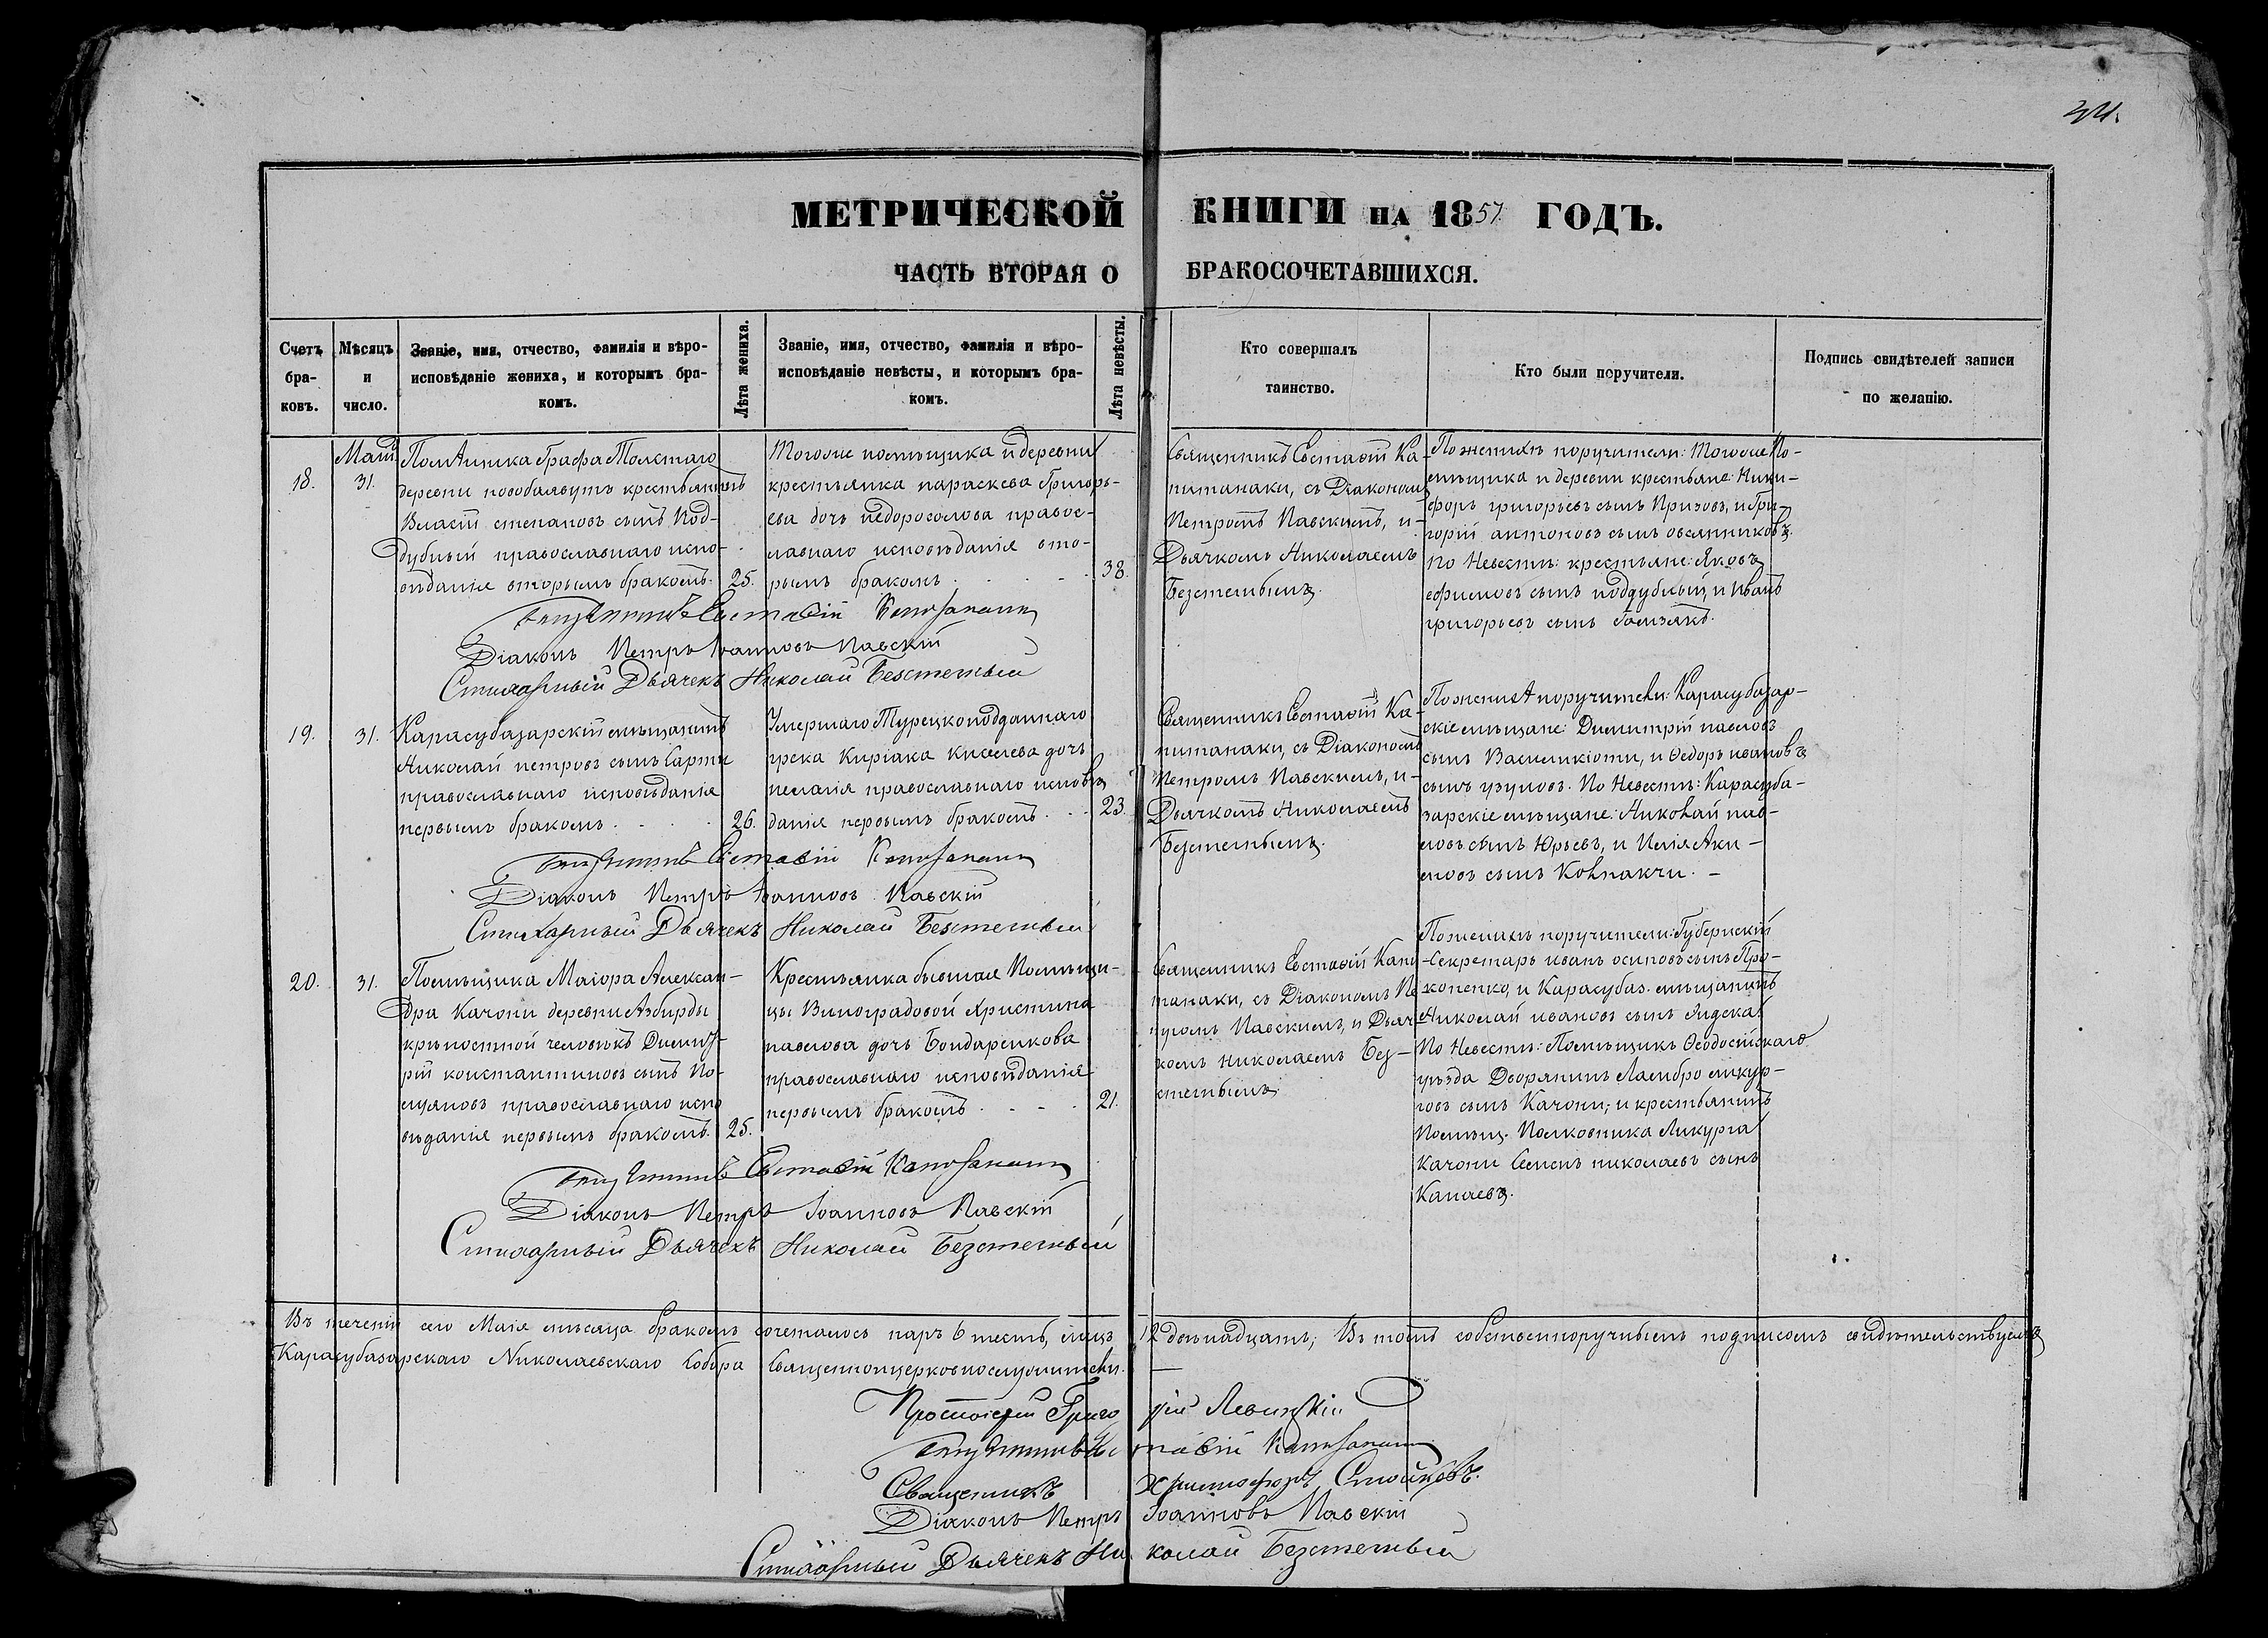 34.
МЕТРИЧЕСКОЙ КНИГИ НА 1857 ГОДЪ.
ЧАСТЬ ВТОРАЯ О БРАКОСОЧЕТАВШИХСЯ.
Счетъ
бра-
ковъ.
Мѣсяцъ
и
число.
Званіе, имя, отчество, фамилія и вѣро-
исповѣданіе жениха, и которымъ бра-
комъ.
Лѣта жениха.
Званіе, имя, отчество, фамилія и вѣро-
исповѣданіе невѣсты, и которымъ бра-
комъ.
Лѣта невѣсты.
Кто совершалъ
таинство.
Кто были поручители.
Подпись свидѣтелей записи
по желанію.
18.
Маія
31.
Помѣщика Графа Толстаго
деревни крестьянинъ
Власій степановъ сынъ Под-
дубный православнаго испо-
вѣданія вторымъ бракомъ.
25.
Тогоже помѣщика и деревни
крестьянка параскева Григорь-
ева дочь недорослова правос-
лавнаго исповѣданія вто-
рымъ бракомъ
38.
Священникъ Евстафій Ка-
питанаки, съ Діакономъ
Петромъ Павскимъ, и
Дьячкомъ Николаемъ
Безсмертнымъ
По женихѣ поручители: Тогоже По-
мѣщика и деревни крестьяне: Ники-
форъ григорьевъ сынъ Призовъ, и Гри-
горій антоновъ сынъ овсянниковъ.
По Невестѣ: крестьяне: Яковъ
ефимовъ сынъ поддубный, и Иванъ
григорьевъ сынъ
Священникъ Евстафій Капитанаки
Діаконъ Петръ Іоанновъ Павскій
Стихарный Дьячекъ Николай
19.
31.
Карасубазарскій мѣщанинъ
Николай петровъ сынъ Сарти
православнаго исповѣданія
первымъ бракомъ
26.
Умершаго Турецкоподданнаго
грека Киріака Киселева дочь
пелагія православнаго исповѣ
данія первымъ бракомъ
23.
Священникъ Евстафій Ка-
питанаки, съ Діакономъ
Петромъ Павскимъ, и
Дьячкомъ Николаемъ
По женихѣ поручители: Карасубазар-
скіе мѣщане: Димитрій павловъ
сынъ Василикіоти, и Ѳедоръ ивановъ
сынъ узуновъ. По Невестѣ: Карасуба-
зарскіе мѣщане: Николай пав-
ловъ сынъ Юрьевъ, и Илія Аки-
мовъ сынъ Колпакчи. –
Священникъ Евстафій Капитанаки
Діаконъ Петръ Іоанновъ Павскій
Стихарный Дьячекъ Николай
20.
31.
Помѣщика Маіора Алексан-
дра Качони деревни Азбирды
крѣпостной человѣкъ Димит-
рій константиновъ сынъ
православнаго испо
вѣданія первымъ бракомъ.
25.
Крестьянка бывшая Помѣщи-
цы Виноградовой Христина
павлова дочь Бондаренкова
православнаго исповѣданія
первымъ бракомъ
21.
Священникъ Евстафій Капи
танаки, съ Діакономъ Пе
тромъ Павскимъ, и Дьяч-
комъ Николаемъ
По женихѣ поручители: Губернскій
Секретарь иванъ осиповъ сынъ Про-
копенко, и Карасубаз. мѣщанинъ
Николай ивановъ сынъ
По Невестѣ: Помѣщикъ Ѳеодосійскаго
уѣзда Дворянинъ Ламбро ликур-
говъ сынъ Качони, и крестьянинъ
Помѣщ. Полковника Ликурга
Качони Семенъ николаевъ сынъ
Капаевъ.
Священникъ Евстафій Капитанаки
Діаконъ Петръ Іоанновъ Павскій
Стихарный Дьячекъ Николай
Въ теченіи сего Маія мѣсяца бракомъ сочеталось паръ 6 шесть, лицъ 12 двенадцать; Въ томъ собственноручнымъ подписомъ свидѣтельствуемъ
Карасубазарскаго Николаевскаго Собора Священноцерковнослужители.
Протоіерей Григорій Левицкій
Священникъ Евстафій Капитанаки
Священникъ Христофоръ Стойковъ.
Діаконъ Петръ Іоанновъ Павскій
Стихарный Дьячекъ Николай